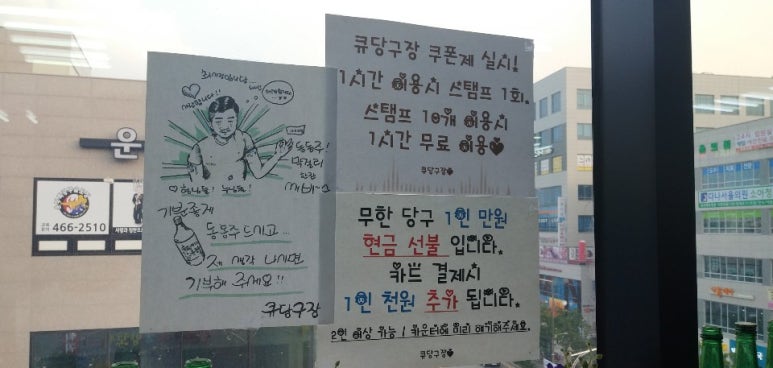 큐당구장 쿠폰제 실시!
1시간 이용시 스탬프 1회.
스탬프 10개 이용시
1시간 무료 이용♥
큐당구장♥
무한 당구 1인 만원
현금 선불 입니다.
카드 결제시
1인 천원 추가 됩니다.
2인 이상 가능 / 카운터에 미리 얘기해주세요.
큐당구장♥
사랑합니다!!
동동주!
막걸리
한잔
형님들! 누님들!
기분좋게
동동주 드시고...
제 생각 나시면
기부해 주세요!!
큐당구장
운
466-2510